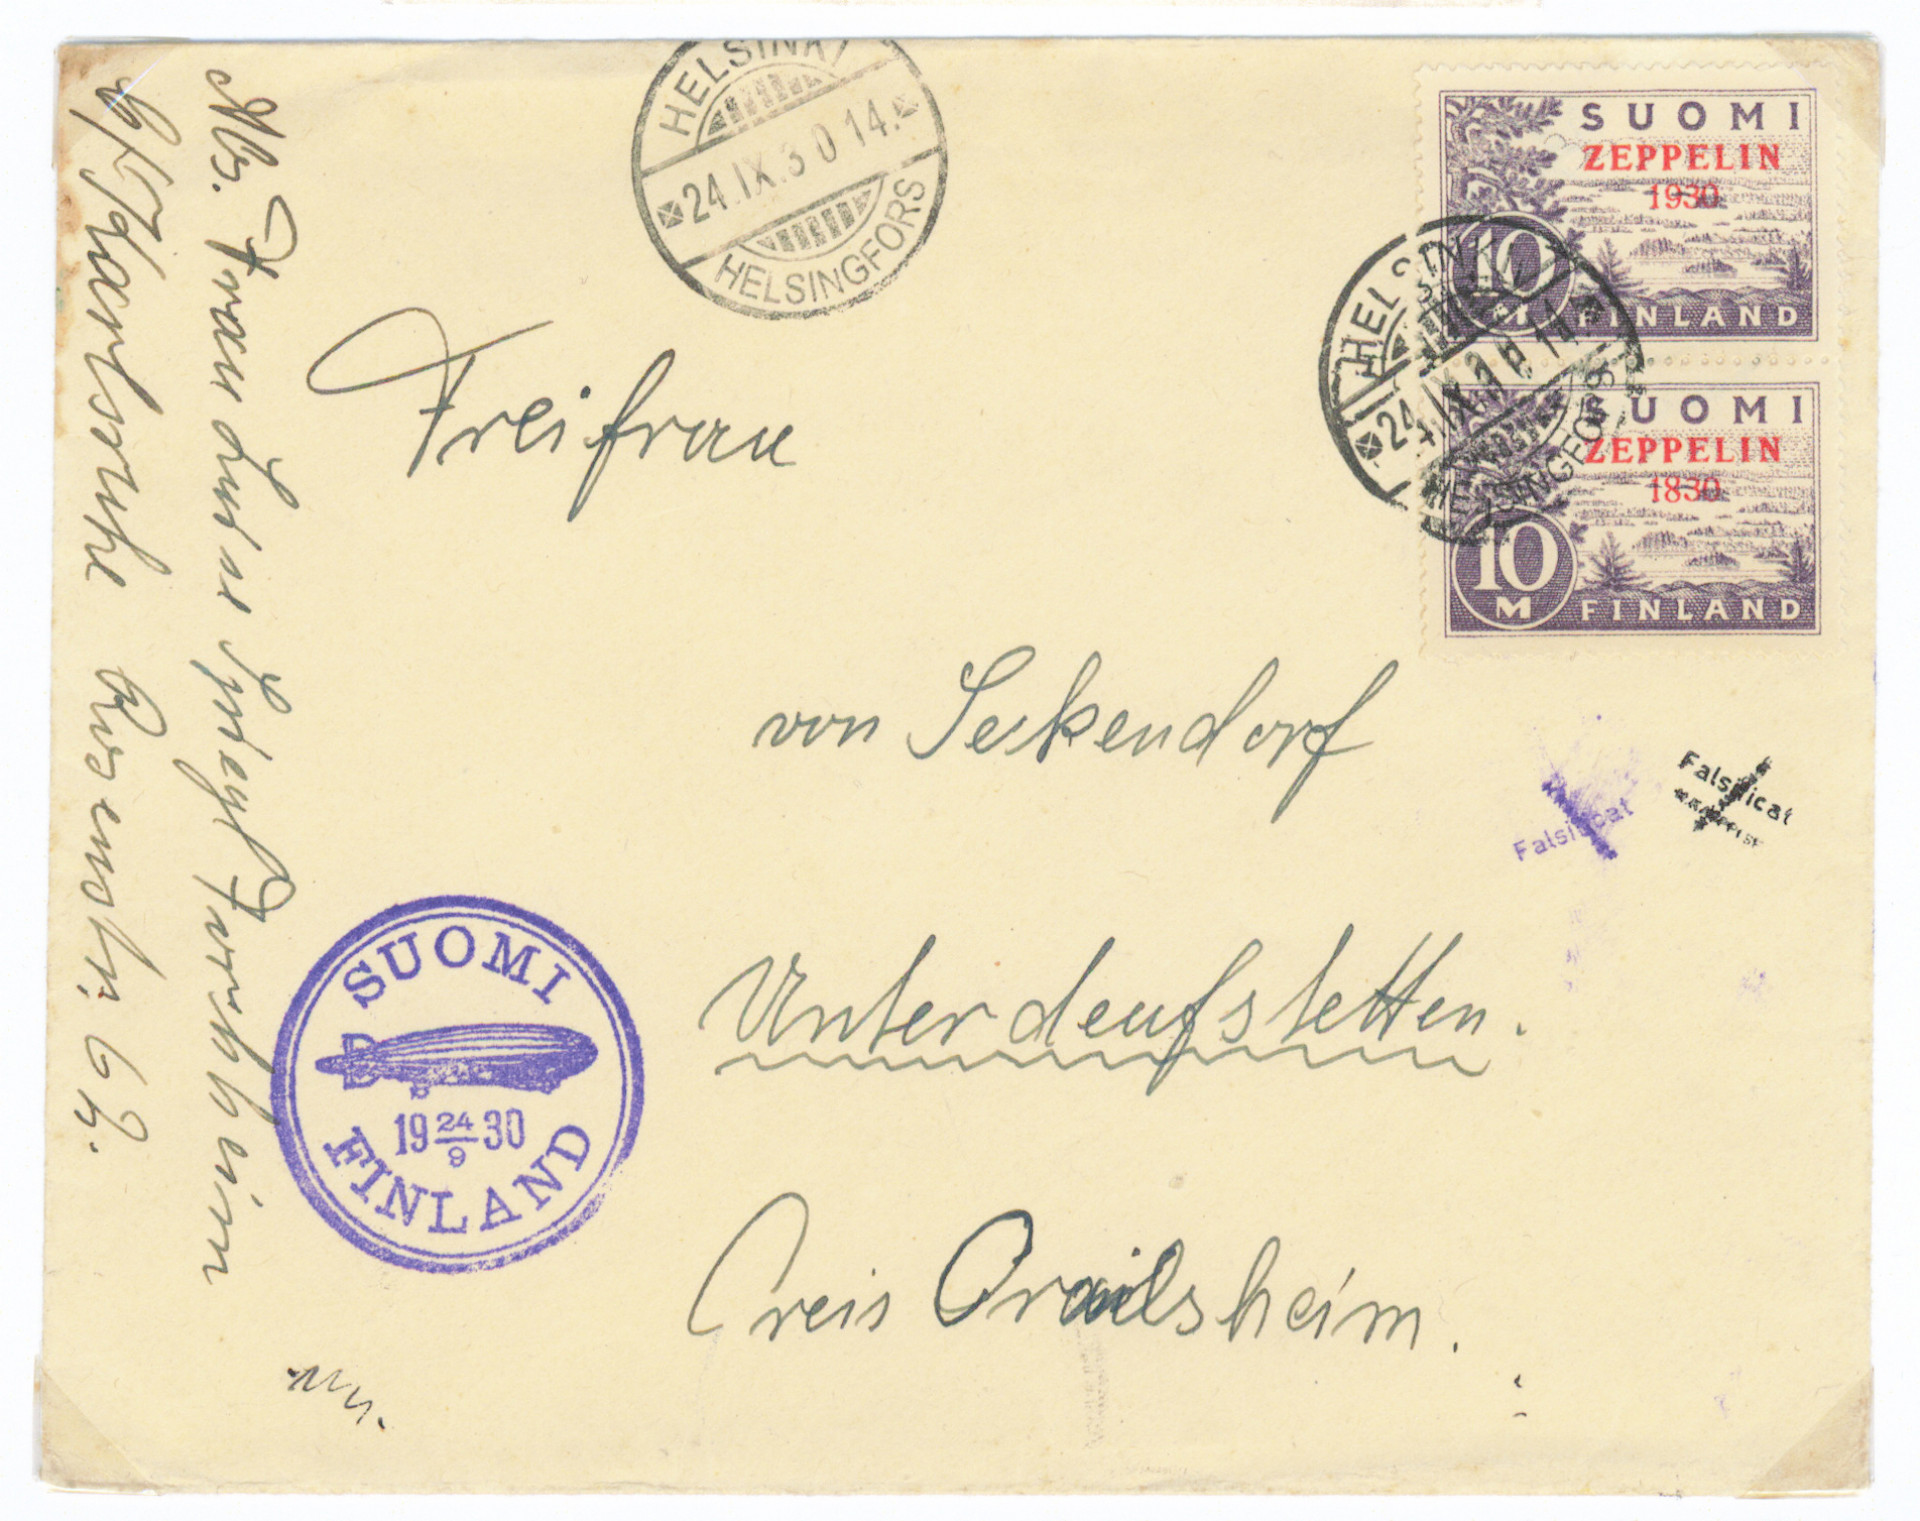 HELSINKI
24.IX.30 14.
HELSINGFORS
SUOMI
ZEPPELIN
1930
10
M
FINLAND
HELSINKI
24.IX.
HELSINGFORS
SUOMI
ZEPPELIN
1830
10
M
FINLAND
Freifrau
von Seckendorf
Unterdeufstetten.
Creis Crailsheim.
Falsificat
Falsificat
SUOMI
19 24/9 30
FINLAND
Abs. Frau Luise
Karlsruhe